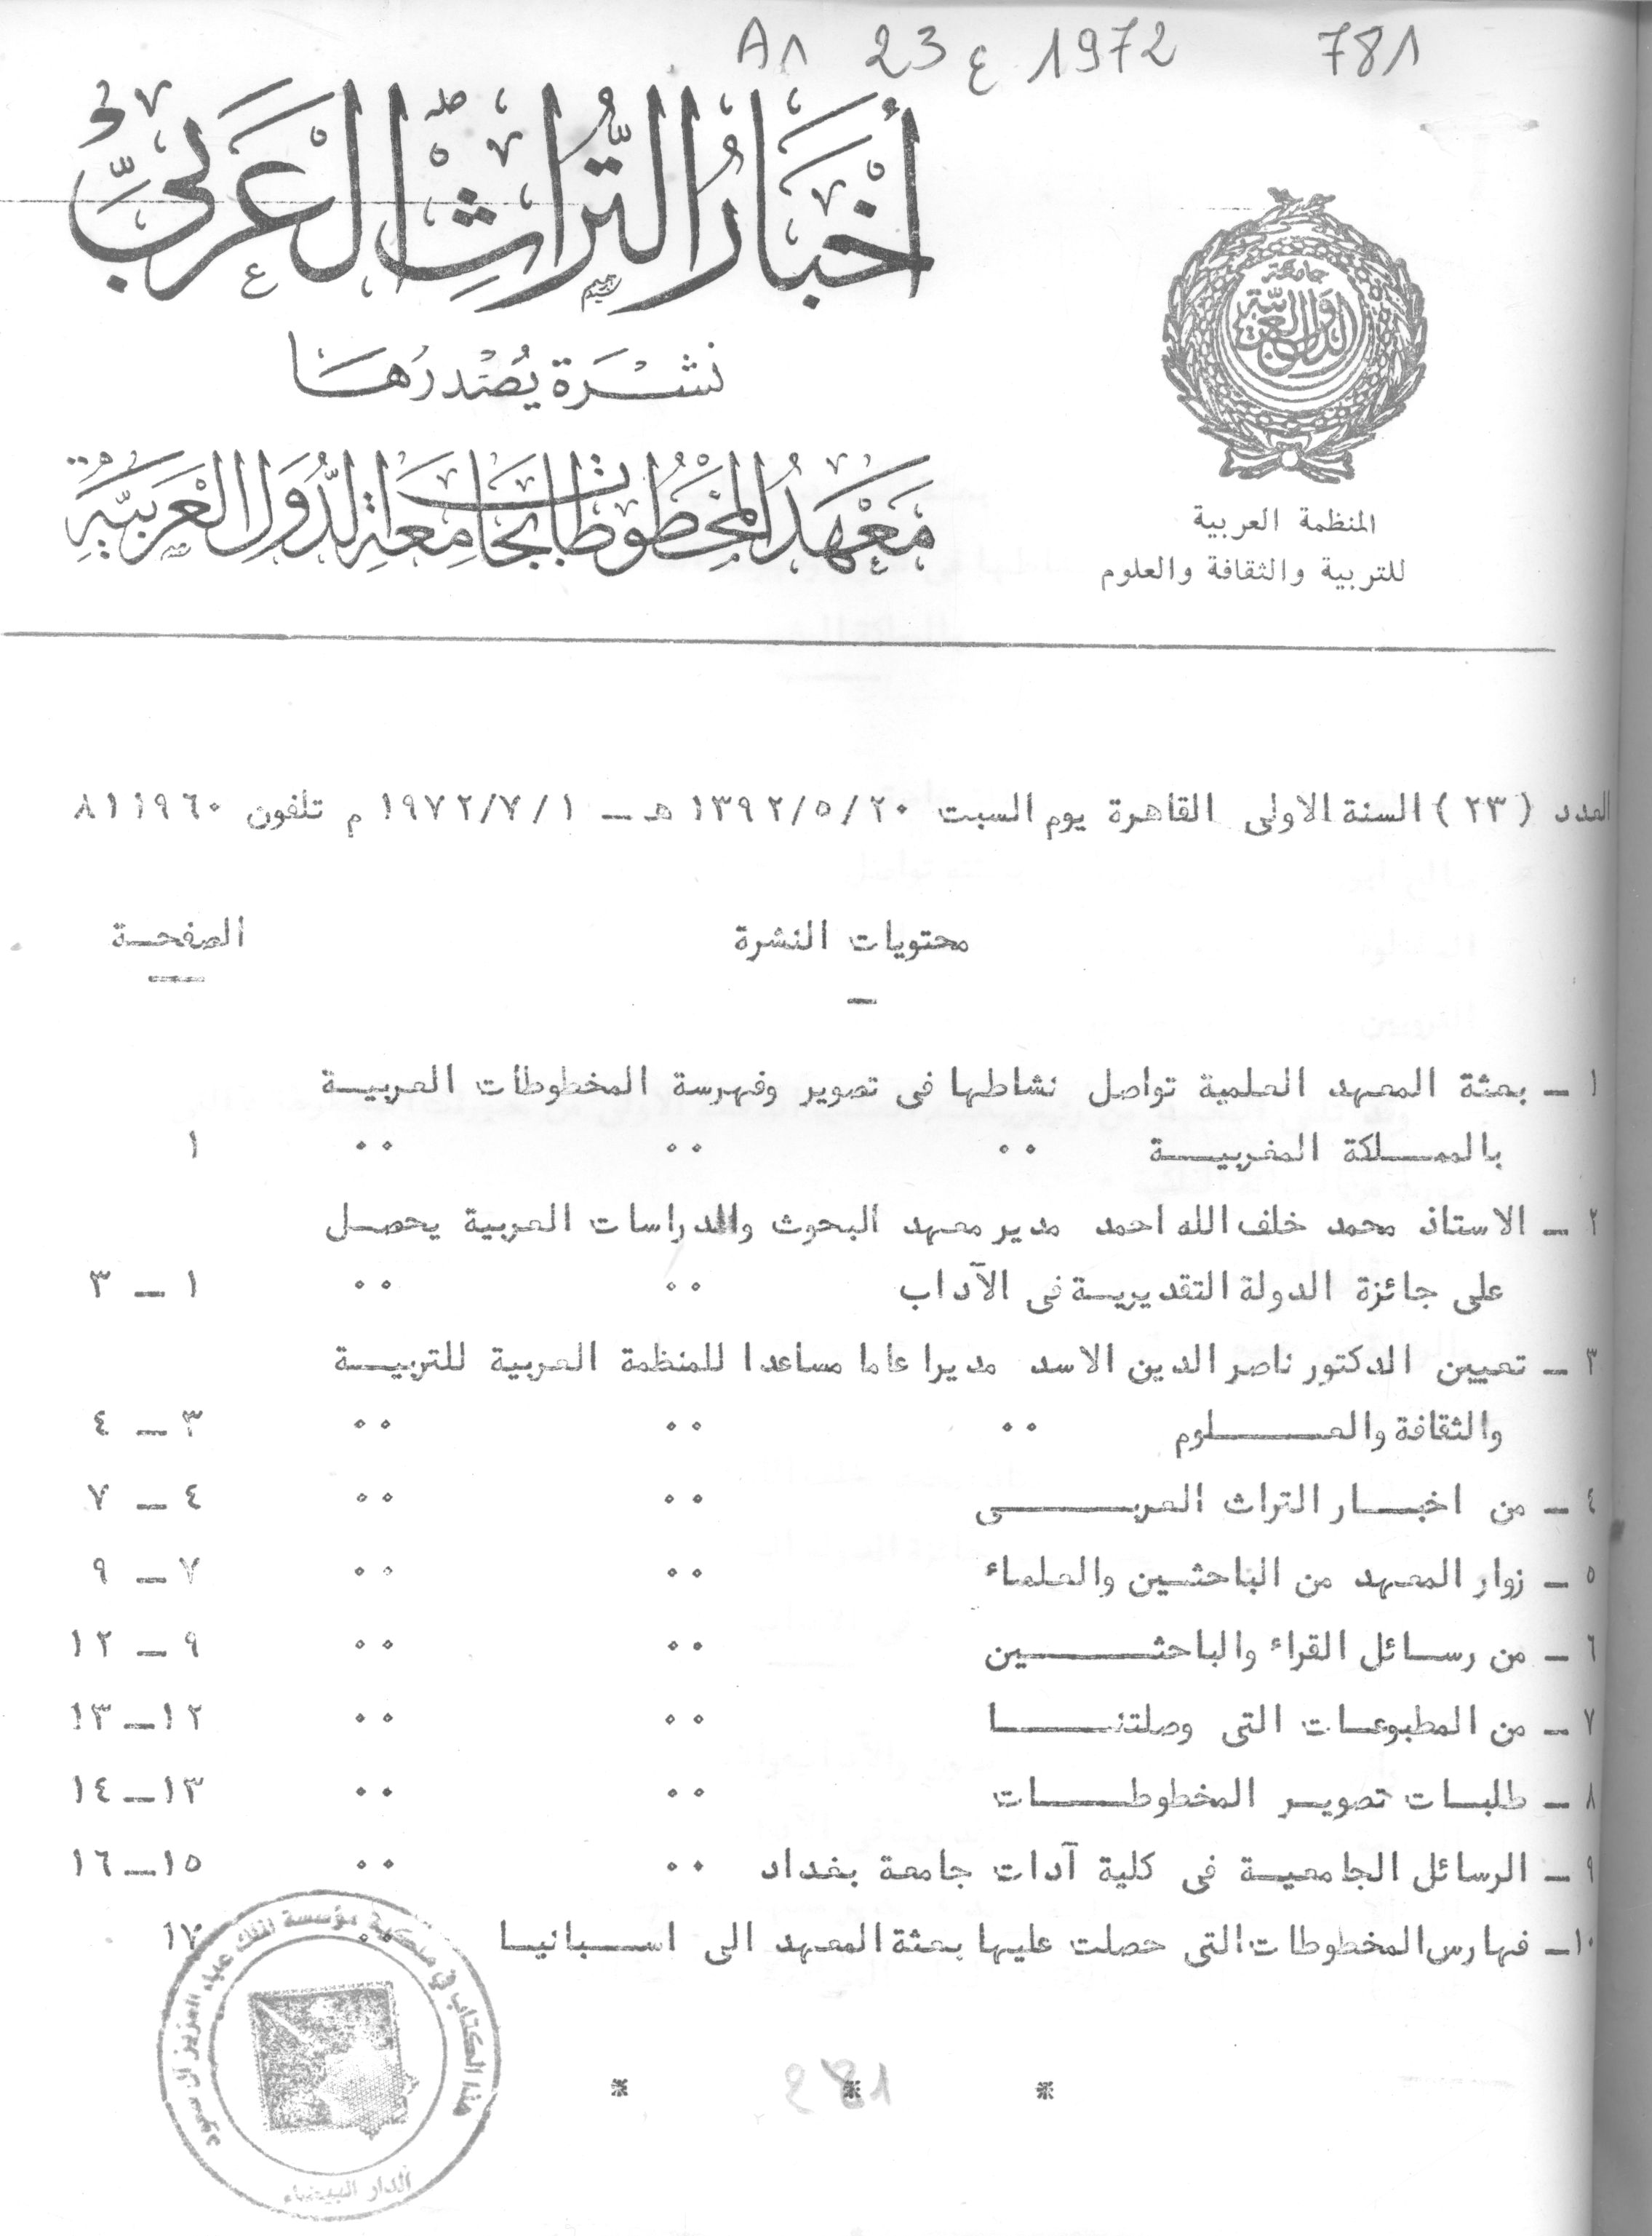 A1 23 ع 1972 781
أَخْبَارُ التُّرَاثِ الْعَرَبِيِّ
نشْرَة يُصْدرُهَا
مَعْهَدُ الْمَخْطُوطَاتِ بِجَامِعَةِ الدُّوَلِ الْعَرَبِيَّةِ
جامعة
الدول العربية
المنظمة العربية
للتربية والثقافة والعلوم
العدد (٢٣) السنة الاولى القاهرة يوم السبت ١٣٩٢/٥/٢٠ هـ ــ ١٩٧٢/٧/١ م تلفون ٨١١٩٦٠
محتويات النشرة الصفحـة
١ ــ بعثة المعهد العلمية تواصل نشاطها فى تصوير وفهرسة المخطوطات العربيـــة
بالممـــلكة المغربيــــة ٠٠ ٠٠ ٠٠ ١
٢ ــ الاستاذ محمد خلف الله احمد مدير معهد البحوث والدراسات العربية يحصــل
على جائزة الدولة التقديريــة فى الآداب ٠٠ ٠٠ ١ ــ ٣
٣ ــ تعيين الدكتور ناصر الدين الاسد مديرا عاما مساعدا للمنظمة العربية للتربيـــة
والثقافة والعـــــــلوم ٠٠ ٠٠ ٠٠ ٣ ــ ٤
٤ ــ من اخبـــار التراث العربـــــــى ٠٠ ٠٠ ٤ ــ ٧
٥ ــ زوار المعهد من الباحثــين والعلماء ٠٠ ٠٠ ٧ ــ ٩
٦ ــ من رســائل القراء والباحثـــــــين ٠٠ ٠٠ ٩ ــ ١٢
٧ ــ من المطبوعــات التى وصلتنـــــــا ٠٠ ٠٠ ١٢ــ١٣
٨ ــ طلبــات تصويــر المخطوطـــــات ٠٠ ٠٠ ١٣ــ١٤
٩ ــ الرسائل الجامعيــة فى كلية آدات جامعة بغداد ٠٠ ٠٠ ١٥ــ١٦
١٠ــ فهارس المخطوطات التى حصلت عليها بعثة المعهد الى اســـبانيــا ٠٠ ١٧
هذا الكتاب في ملكية مؤسسة الملك عبد العزيز آل سعود
الدار البيضاء
* * *